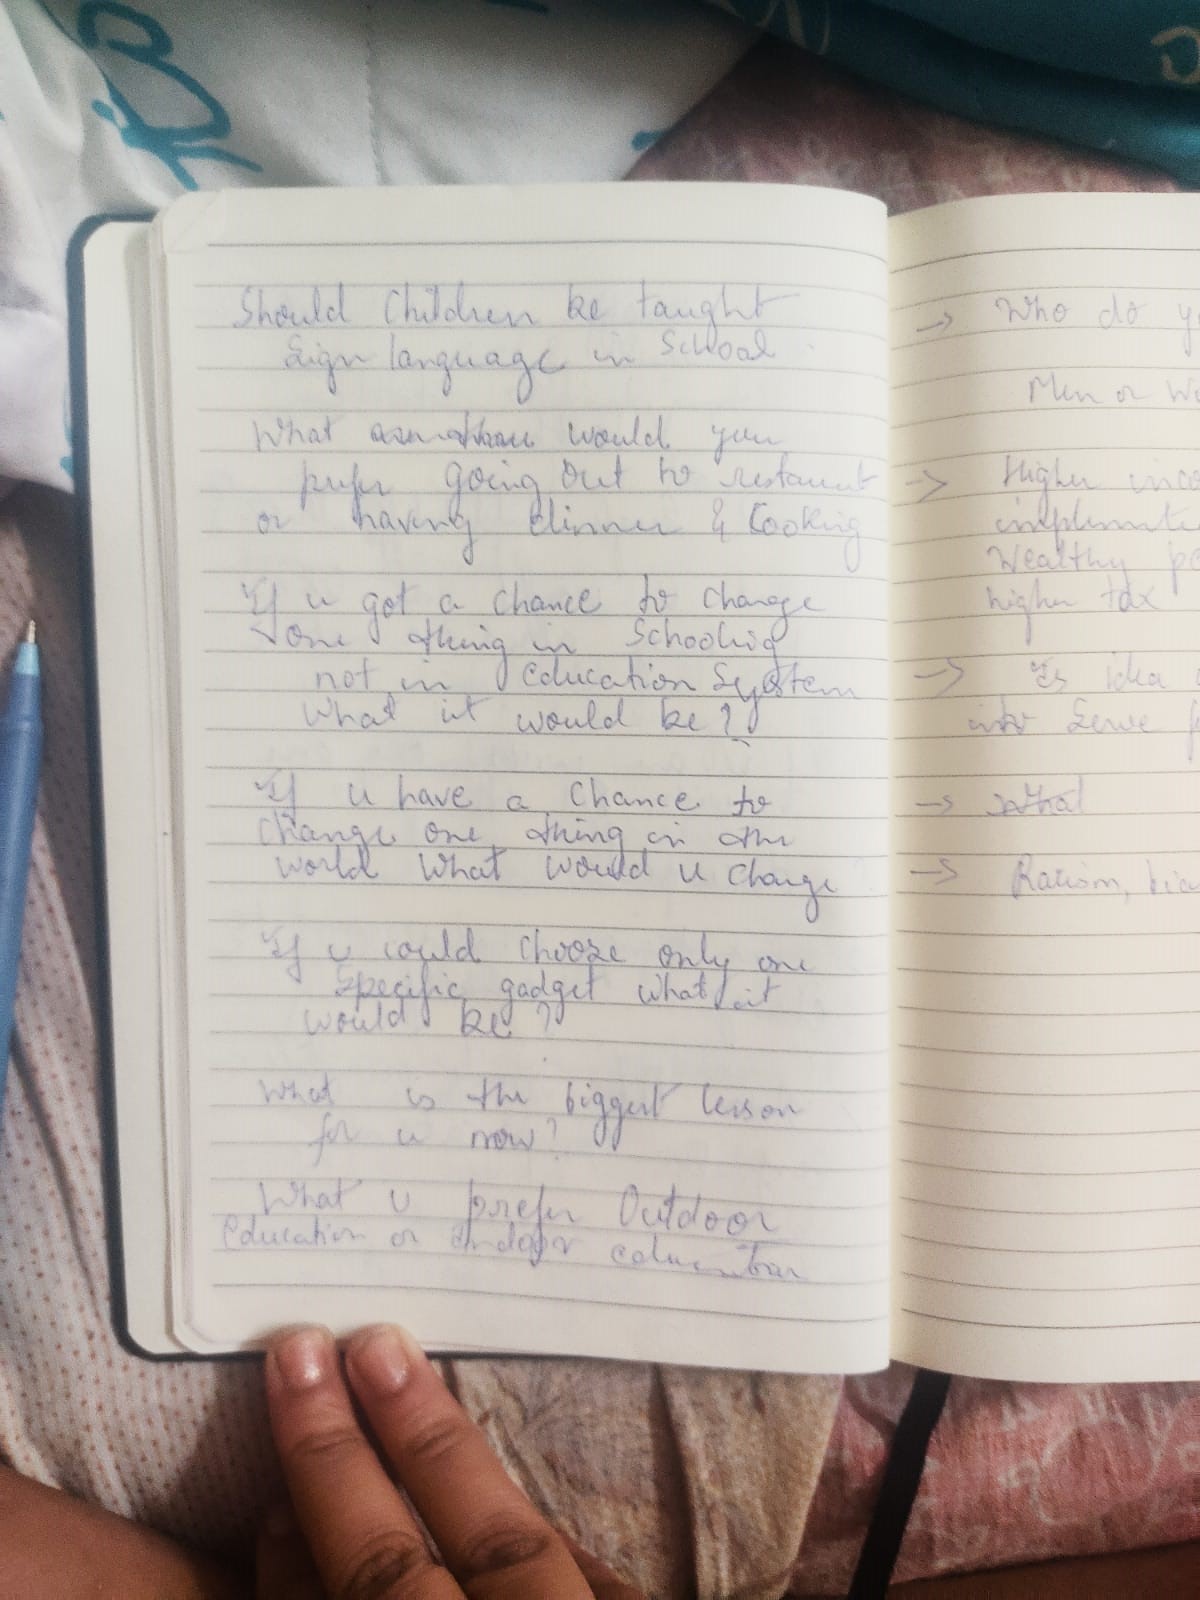 Should Children be taught
Sign language in School
What would you
prefer going out to restaurant
or having dinner & Cooking
If u got a chance to change
one thing in Schooling
not in education System
What it would be?
If u have a chance to
change one thing in the
world what would u change
If u could choose only one
specific gadget what it
would be?
What is the biggest lesson
for u now?
What u prefer Outdoor
education or indoor education
→ Who do
Men or
→ Higher
Wealthy
higher tax
→ Is idea
into serve
→ What
→ Racism,